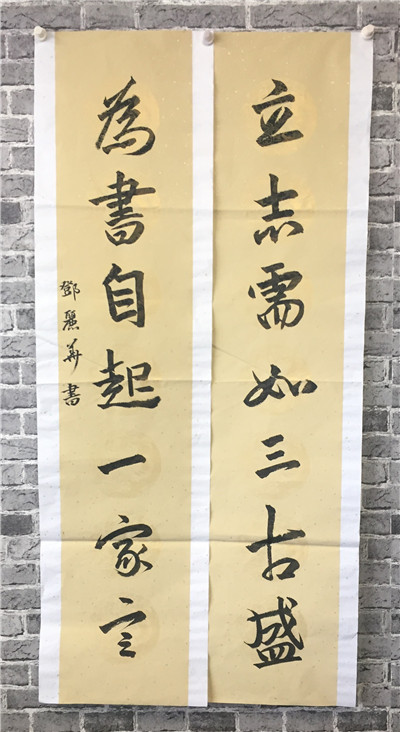 立志需如三古盛
為書自起一家言
鄧麗華書